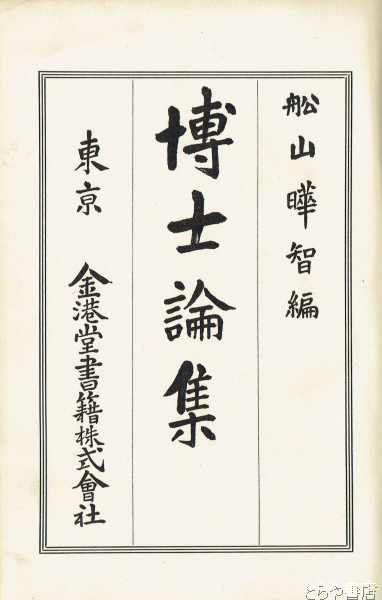 舩山曄智編
博士論集
東京 金港堂書籍株式會社
とらや書店